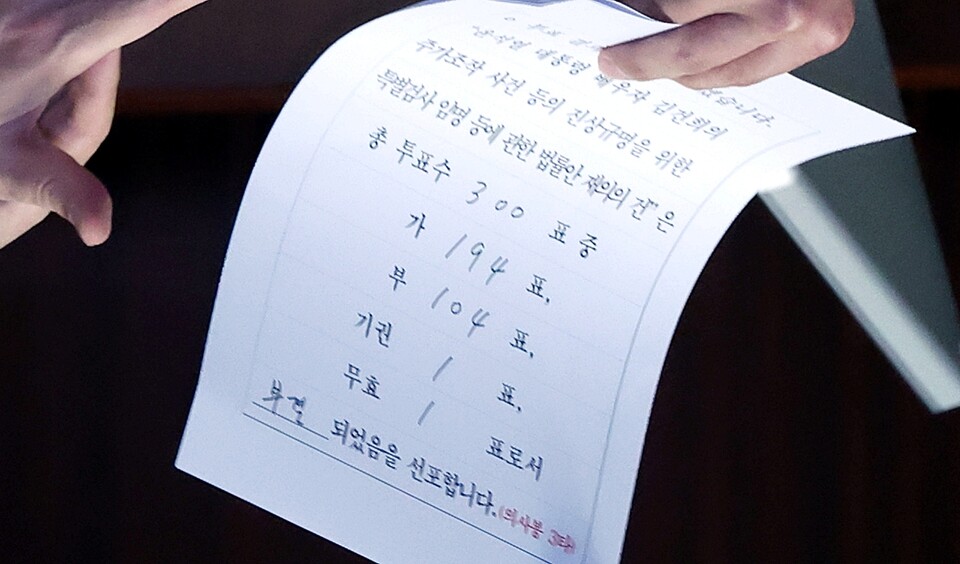 대통령 배우자 김건희의
주가조작 사건 등의 진상규명을 위한
특별검사 임명 등에 관한 법률안 재의의 건"은
총 투표수 300 표 중
가 194 표,
부 104 표,
기권 1 표,
무효 1 표로서
부결 되었음을 선포합니다. (의사봉 3타)